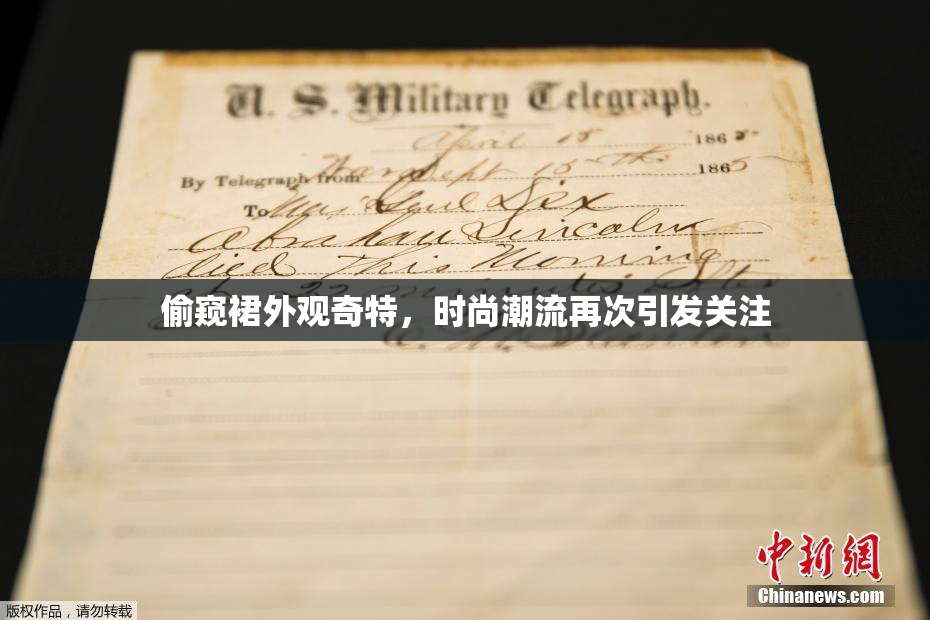 U. S. Military Telegraph.
April 15 1865-
By Telegraph from War Dept 15th 1865
To Maj Genl Dix
Abraham Lincoln
died This Morning
at 22 minutes after
偷窥裙外观奇特，时尚潮流再次引发关注
中新網
Chinanews.com
版权作品，请勿转载